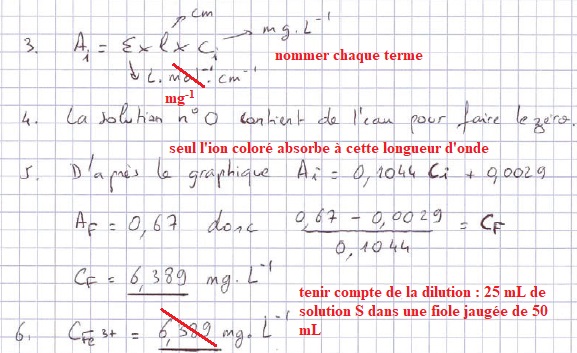 cm
3. Ai = ε x l x Ci → mg. L⁻¹
nommer chaque terme
L. mol⁻¹. cm⁻¹
mg⁻¹
4. La solution n°0 contient de l'eau pour faire le zéro.
seul l'ion coloré absorbe à cette longueur d'onde
5. D'après le graphique Ai = 0,1044 Ci + 0,0029
AF = 0,67 donc (0,67 - 0,0029) / 0,1044 = CF
CF = 6,389 mg. L⁻¹
tenir compte de la dilution : 25 mL de
solution S dans une fiole jaugée de 50
mL
6. CFe³⁺ = 6,389 mg. L⁻¹